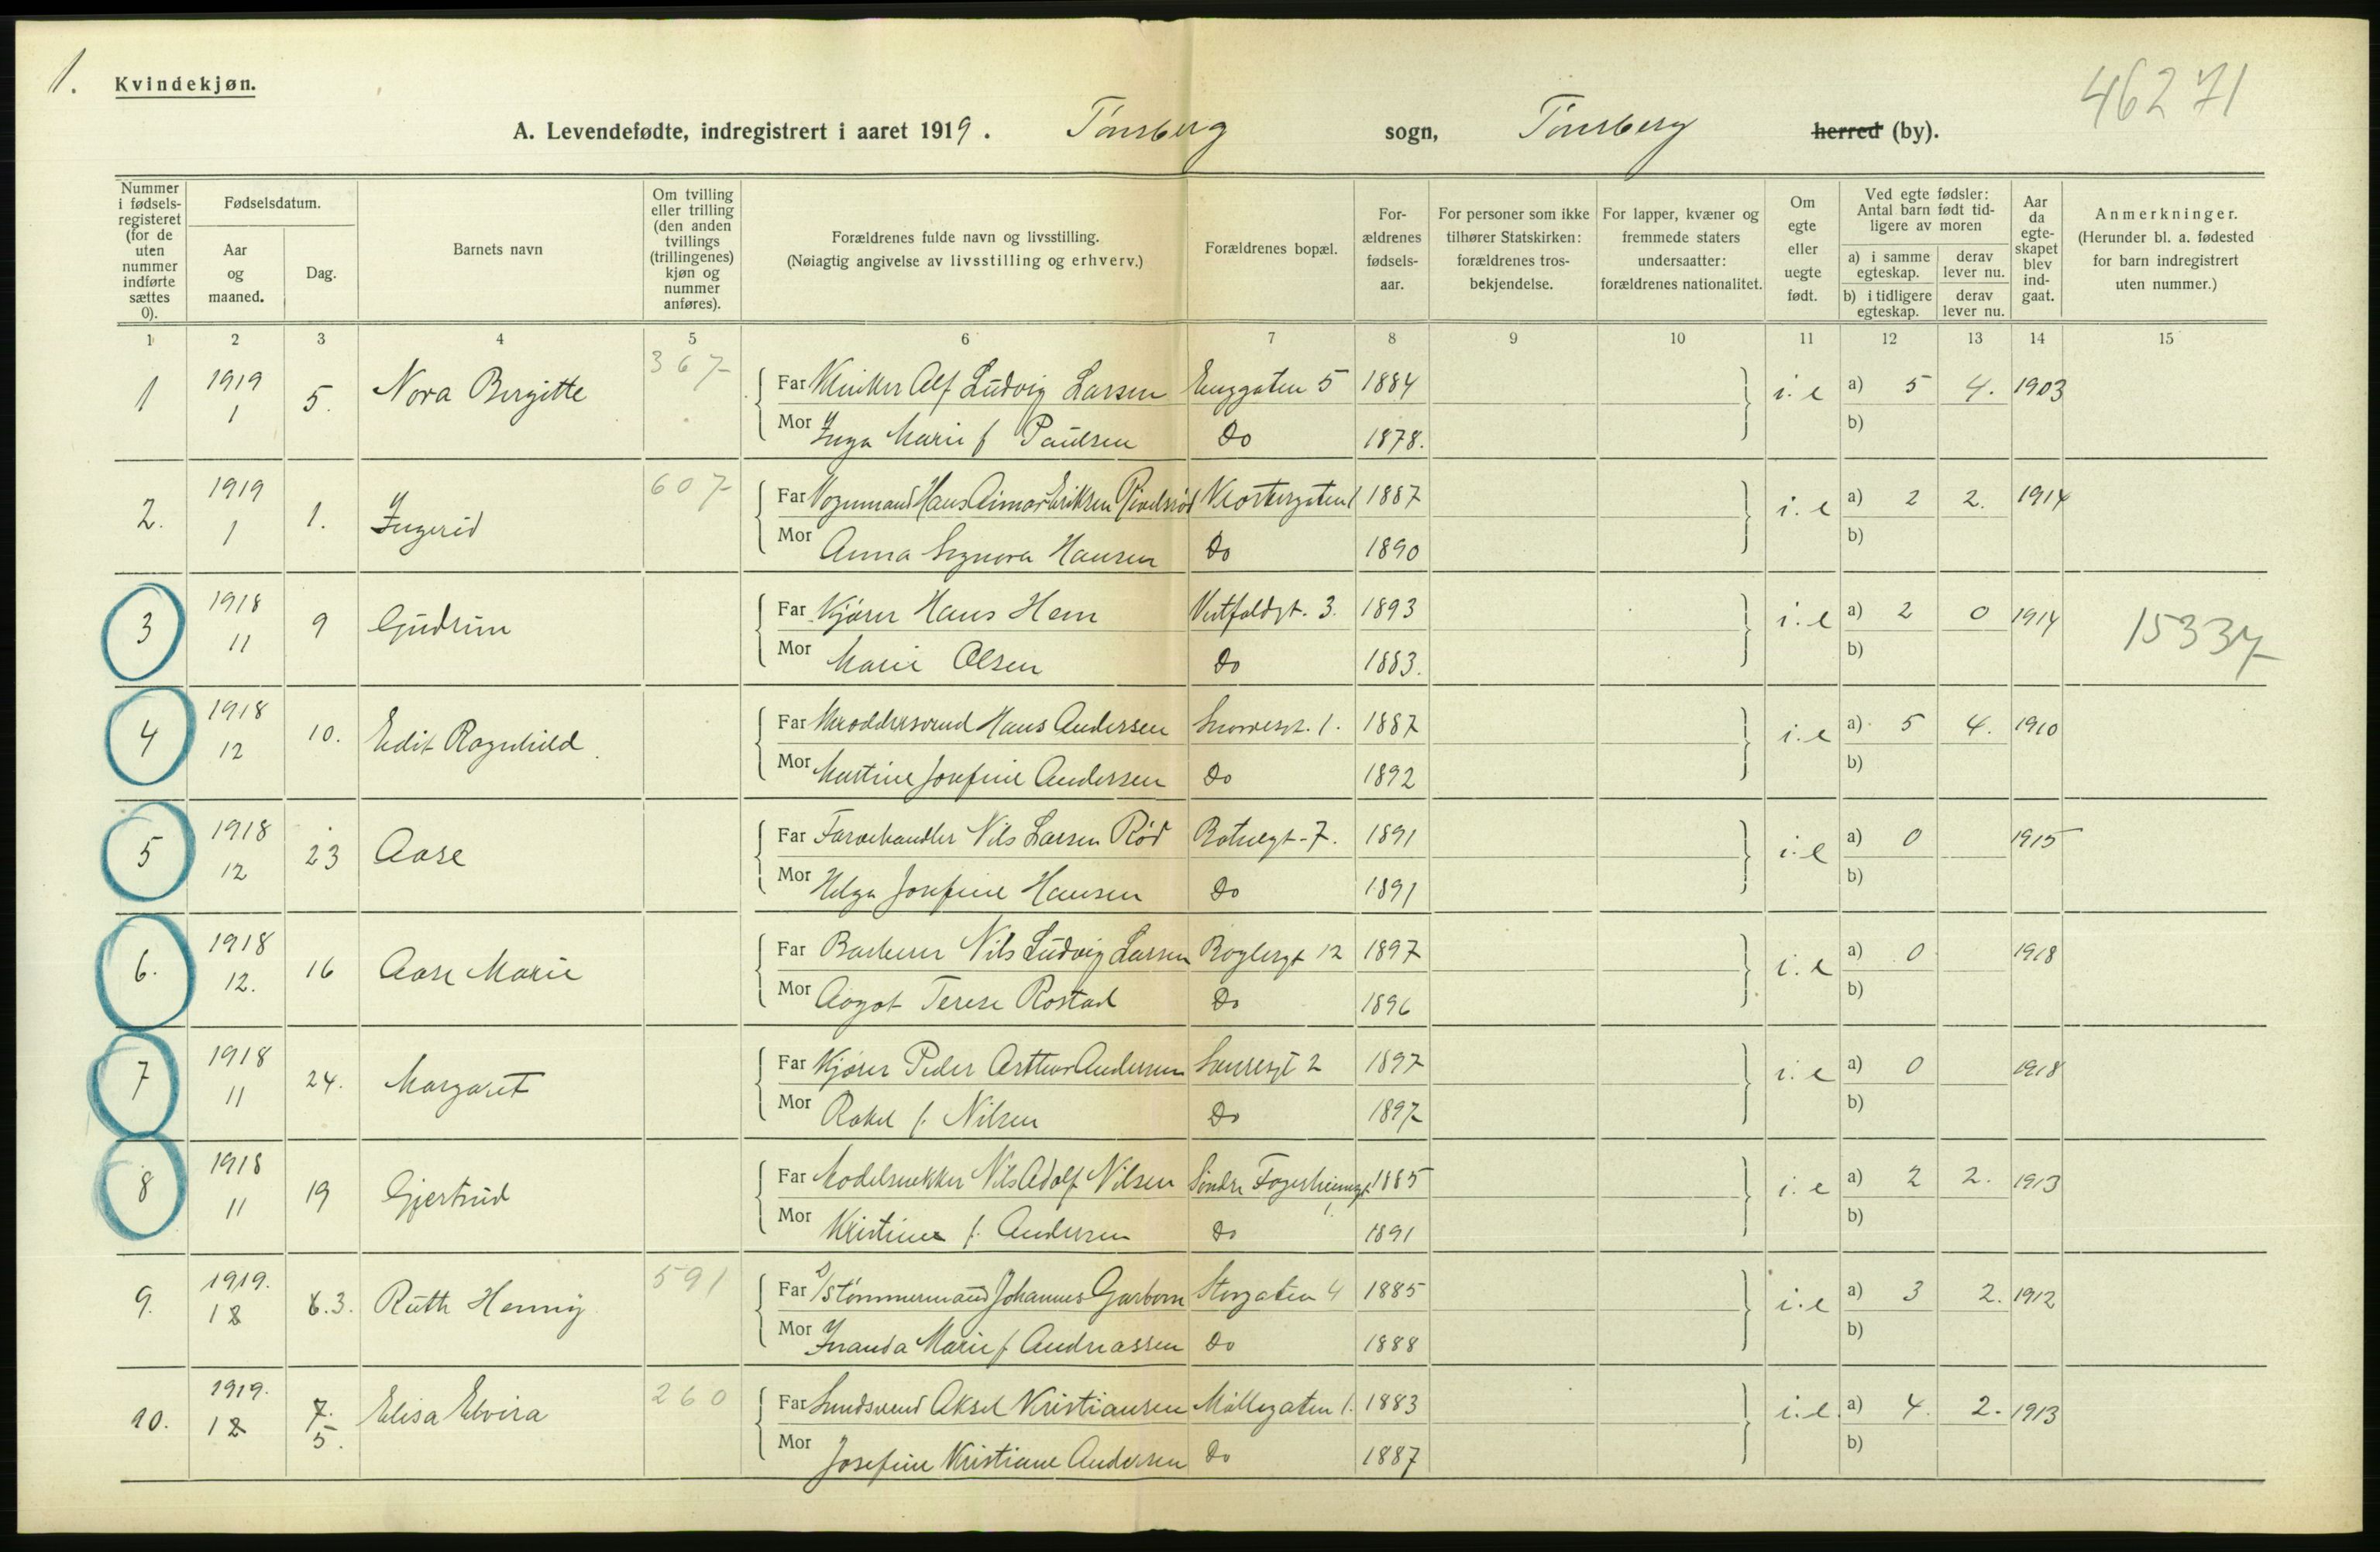 1.
Kvindekjøn.
46271
A. Levendefødte, indregistrert i aaret 1919. Tønsberg sogn, Tønsberg herred (by).
Nummer i fødsels-registeret (for de uten nummer indførte sættes 0).
Fødselsdatum.
Aar og maaned.
Dag.
Barnets navn
Om tvilling eller trilling (den anden tvillings (trillingenes) kjøn og nummer anføres).
Forældrenes fulde navn og livsstilling.
(Nøiagtig angivelse av livsstilling og erhverv.)
Forældrenes bopæl.
For-ældrenes fødsels-aar.
For personer som ikke tilhører Statskirken: forældrenes tros-bekjendelse.
For lapper, kvæner og fremmede staters undersaatter: forældrenes nationalitet.
Om egte eller uegte født.
Ved egte fødsler: Antal barn født tid-ligere av moren
a) i samme egteskap.
derav lever nu.
b) i tidligere egteskap.
derav lever nu.
Aar da egte-skapet blev ind-gaat.
Anmerkninger.
(Herunder bl. a. fødested for barn indregistrert uten nummer.)
1 2 3 4 5 6 7 8 9 10 11 12 13 14 15
1 1919 1 5. Nora Birgitte 367 Far Alf Ludvig Larsen Enggaten 5 1884 i. e a) 5 4. 1903
Mor Inga Marie f Paulsen Do 1878. b)
2. 1919 1 1. Ingerid 607 Far Vognmand Hans Eimar Eriksen 1887 i. e a) 2 2. 1914
Mor Anna Signora Hansen Do 1890 b)
3 1918 11 9 Gudrun Far Kjører Hans Hem Vestfoldgt. 3. 1893 i. e a) 2 0 1914 15337
Mor Marie Olsen Do 1883. b)
4 1918 12 10. Edit Ragnhild Far Hans Andersen Snorresgt. 1. 1887 i. e a) 5 4. 1910
Mor Martine Josefine Andersen Do 1892 b)
5 1918 12 23 Aase Far Farvehandler Nils Larsen Rød 7. 1891 i. e a) 0 1915
Mor Helga Josefine Hansen Do 1891 b)
6. 1918 12. 16 Aase Marie Far Barberer Nils Ludvig Larsen Baglergt 12 1897 i. e a) 0 1918
Mor Aagot Terese Rostad Do 1896 b)
7 1918 11 24. Margaret Far Kjører Peder Arthur Andersen 2 1897 i. e a) 0 1918
Mor Rakel f. Nilsen Do 1897 b)
8 1918 11 19 Gjertrud Far Modelsnekker Nils Adolf Nilsen Søndre Fagerheimgt 1885 i. e a) 2 2. 1913
Mor Kristine f. Andersen Do 1891 b)
9. 1919. 1 2 8.3. Ruth Henny 591 Far D/stømmermand Johannes Garborn Storgaten 4 1885 i. e a) 3 2. 1912
Mor Inanda Marie f Andreassen Do 1888 b)
10. 1919. 1 2 7. 5. Elisa Elvira 260 Far Aksel Kristiansen Møllegaten 1. 1883 i. e. a) 4. 2. 1913
Mor Josefine Kristiane Andersen Do 1887 b)